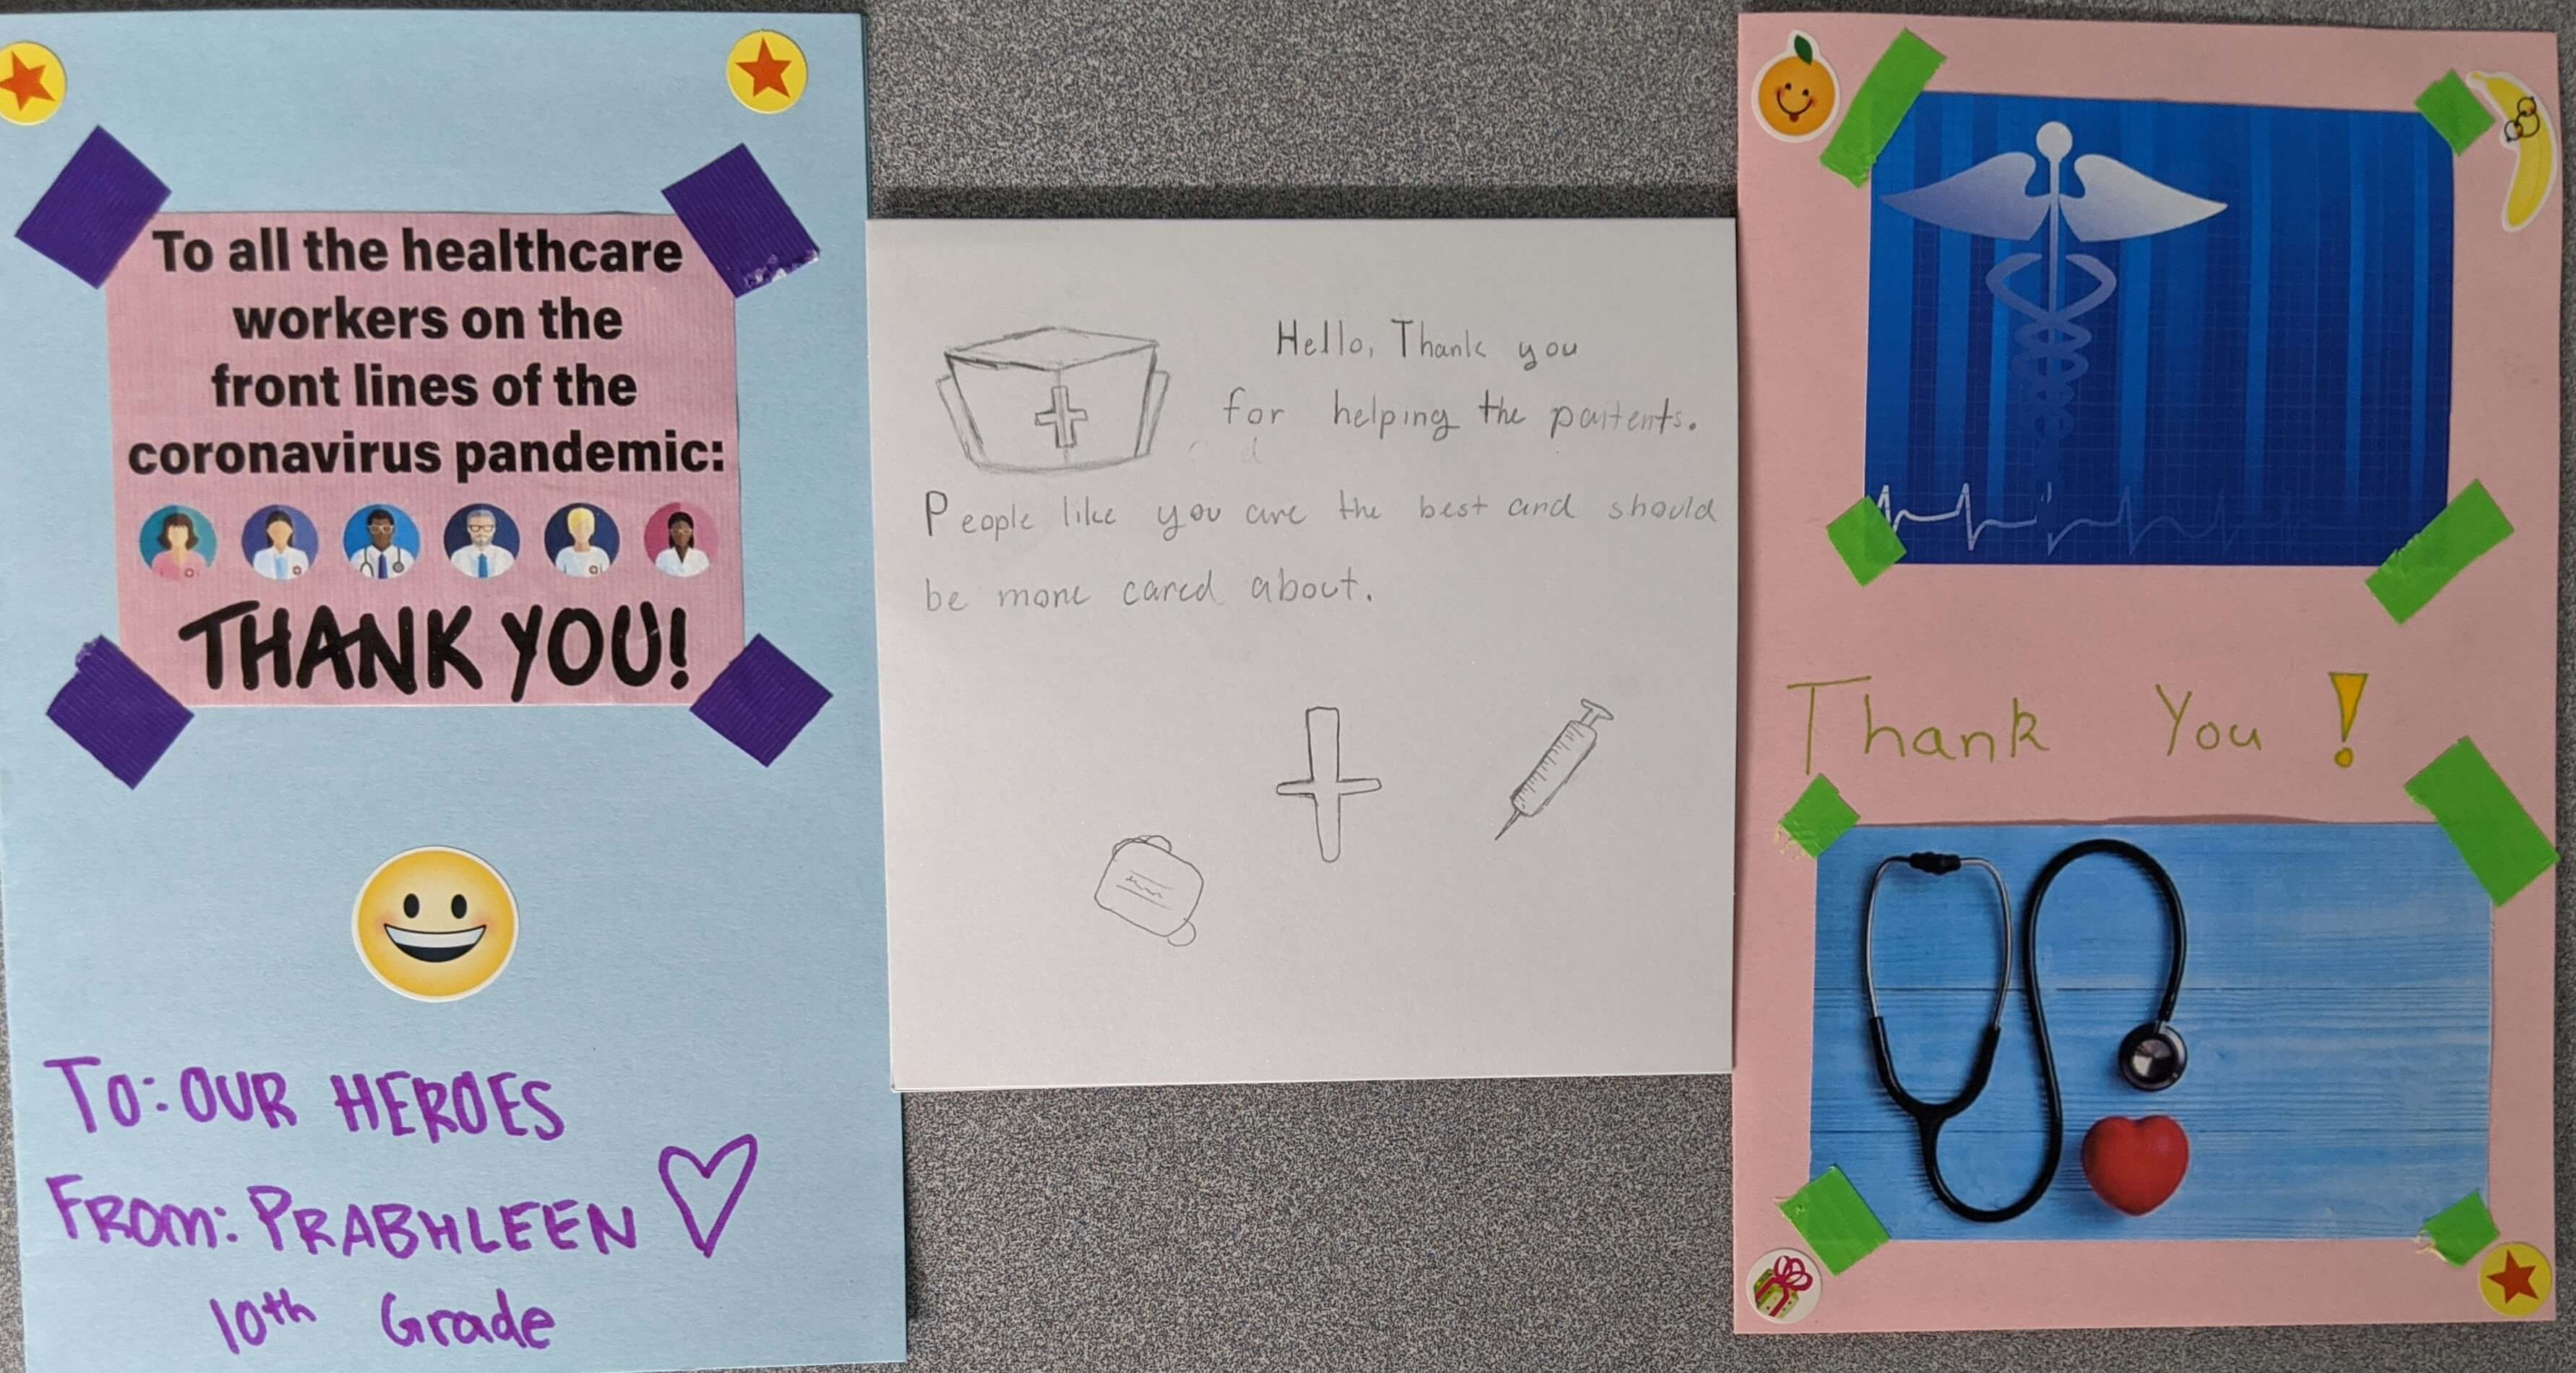 To all the healthcare
workers on the
front lines of the
coronavirus pandemic:
THANK YOU!
TO: OUR HEROES
FROM: PRABHLEEN
10th Grade
Hello, Thank you
for helping the paitents.
People like you are the best and should
be more cared about.
Thank You!